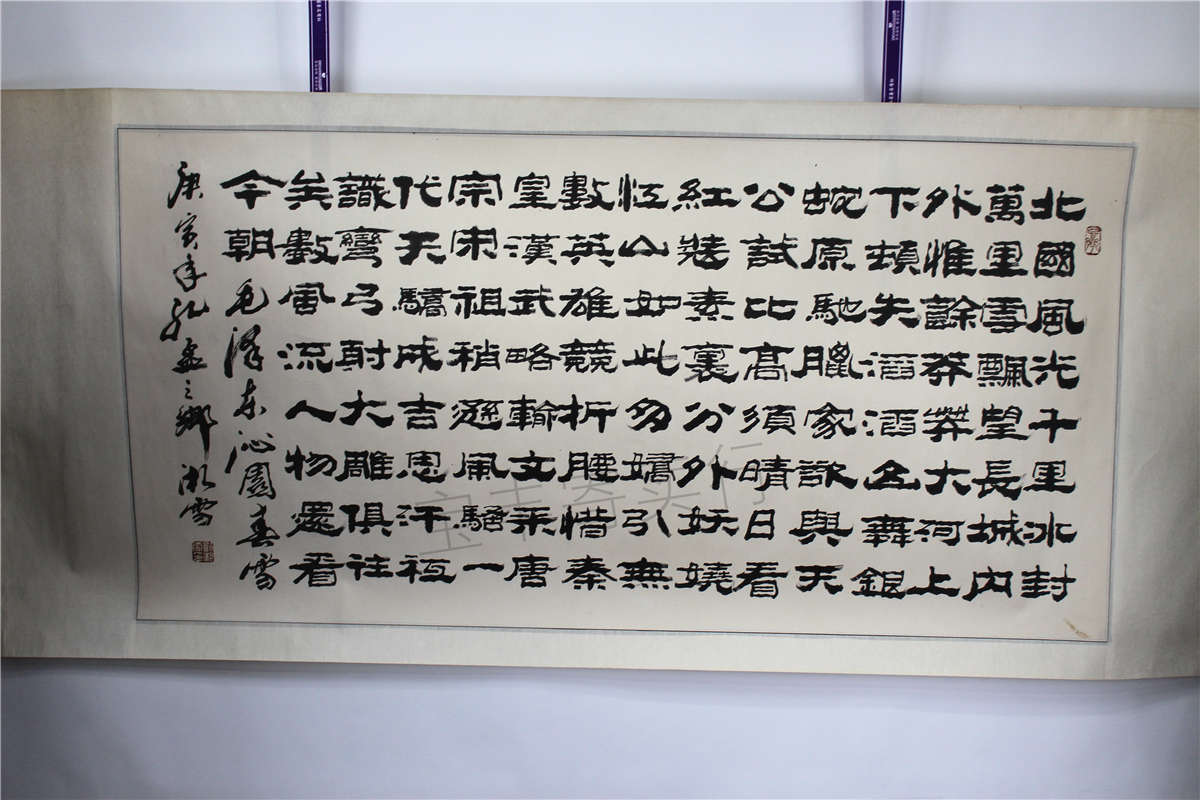 北國風光千里冰封
萬里雪飄望長城內
外惟餘莽莽大河上
下頓失滔滔山舞銀
蛇原馳臘象欲與天
公試比高須晴日看
紅裝素裹分外妖嬈
江山如此多嬌引無
數英雄競折腰惜秦
皇漢武略輸文采唐
宗宋祖稍遜風騷一
代天驕成吉思汗祗
識彎弓射大雕俱往
矣數風流人物還看
今朝 毛澤東沁園春雪
庚寅年孔孟之鄉 雪
宝丰寄卖行